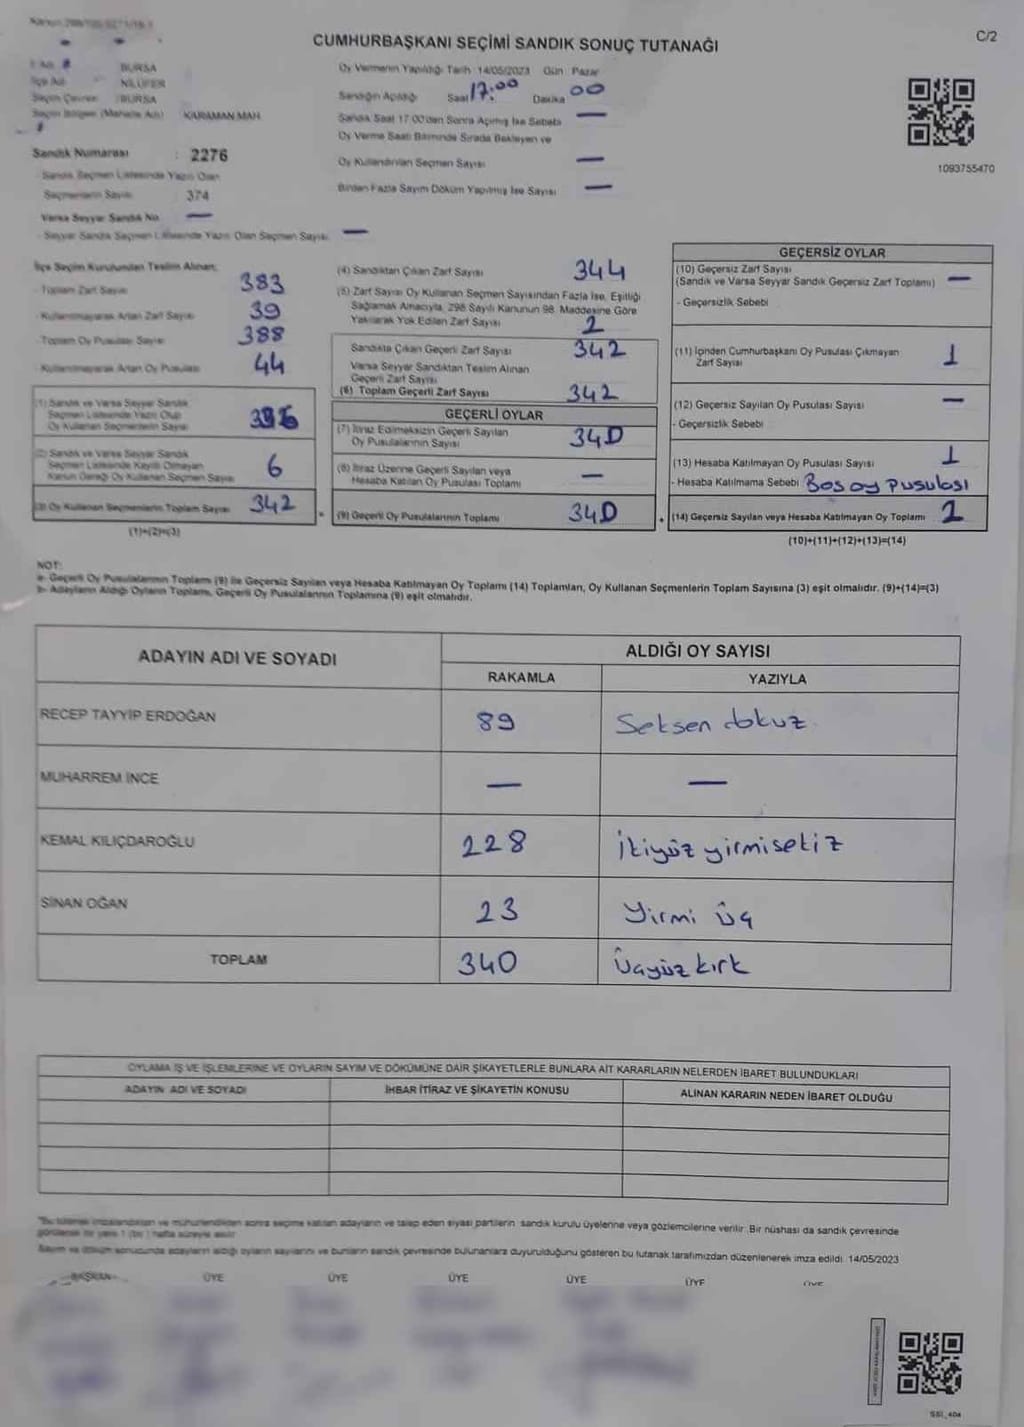 C/2
CUMHURBAŞKANI SEÇİMİ SANDIK SONUÇ TUTANAĞI
BURSA
NİLÜFER
BURSA
KARAMAN MAH.
Sandık Numarası : 2276
Sandık Seçmen Listesinde Yazılı Olan
Seçmenlerin Sayısı 374
Varsa Seyyar Sandık No —
- Seyyar Sandık Seçmen Listesinde Yazılı Olan Seçmen Sayısı —
Oy Vermenin Yapıldığı Tarih 14/05/2023 Gün Pazar
Sandığın Açıldığı Saat 17:00 Dakika 00
Sandık Saat 17.00'den Sonra Açılmış İse Sebebi —
Oy Verme Saati Bitiminde Sırada Bekleyen ve
Oy Kullandırılan Seçmen Sayısı —
Birden Fazla Sayım Döküm Yapılmış İse Sayısı —
1093755470
İlçe Seçim Kurulundan Teslim Alınan;
- Toplam Zarf Sayısı 383
- Kullanılmayarak Artan Zarf Sayısı 39
- Toplam Oy Pusulası Sayısı 388
- Kullanılmayarak Artan Oy Pusulası 44
(1) Sandık ve Varsa Seyyar Sandık
Seçmen Listesinde Yazılı Olup
Oy Kullanan Seçmenlerin Sayısı
(2) Sandık ve Varsa Seyyar Sandık
Seçmen Listesinde Kayıtlı Olmayan
Kanun Gereği Oy Kullanan Seçmen Sayısı 6
(3) Oy Kullanan Seçmenlerin Toplam Sayısı 342
(1)+(2)=(3)
(4) Sandıktan Çıkan Zarf Sayısı 344
(5) Zarf Sayısı Oy Kullanan Seçmen Sayısından Fazla İse, Eşitliği
Sağlamak Amacıyla, 298 Sayılı Kanunun 98. Maddesine Göre
Yakılarak Yok Edilen Zarf Sayısı 2
Sandıkta Çıkan Geçerli Zarf Sayısı 342
Varsa Seyyar Sandıktan Teslim Alınan
Geçerli Zarf Sayısı
(6) Toplam Geçerli Zarf Sayısı 342
GEÇERLİ OYLAR
(7) İtiraz Edilmeksizin Geçerli Sayılan
Oy Pusulalarının Sayısı 340
(8) İtiraz Üzerine Geçerli Sayılan veya
Hesaba Katılan Oy Pusulası Toplamı —
(9) Geçerli Oy Pusulalarının Toplamı 340
GEÇERSİZ OYLAR
(10) Geçersiz Zarf Sayısı
(Sandık ve Varsa Seyyar Sandık Geçersiz Zarf Toplamı) —
- Geçersizlik Sebebi
(11) İçinden Cumhurbaşkanı Oy Pusulası Çıkmayan
Zarf Sayısı 1
(12) Geçersiz Sayılan Oy Pusulası Sayısı —
- Geçersizlik Sebebi
(13) Hesaba Katılmayan Oy Pusulası Sayısı 1
- Hesaba Katılmama Sebebi Boş oy pusulası
(14) Geçersiz Sayılan veya Hesaba Katılmayan Oy Toplamı 2
(10)+(11)+(12)+(13)=(14)
NOT:
a- Geçerli Oy Pusulalarının Toplamı (9) ile Geçersiz Sayılan veya Hesaba Katılmayan Oy Toplamı (14) Toplamları, Oy Kullanan Seçmenlerin Toplam Sayısına (3) eşit olmalıdır. (9)+(14)=(3)
b- Adayların Aldığı Oyların Toplamı, Geçerli Oy Pusulalarının Toplamına (9) eşit olmalıdır.
ADAYIN ADI VE SOYADI
ALDIĞI OY SAYISI
RAKAMLA YAZIYLA
RECEP TAYYİP ERDOĞAN 89 Seksen dokuz
MUHARREM İNCE — —
KEMAL KILIÇDAROĞLU 228 İkiyüz yirmisekiz
SİNAN OĞAN 23 Yirmi üç
TOPLAM 340 Üçyüz kırk
OYLAMA İŞ VE İŞLEMLERİNE VE OYLARIN SAYIM VE DÖKÜMÜNE DAİR ŞİKAYETLERLE BUNLARA AİT KARARLARIN NELERDEN İBARET BULUNDUKLARI
ADAYIN ADI VE SOYADI İHBAR İTİRAZ VE ŞİKAYETİN KONUSU ALINAN KARARIN NEDEN İBARET OLDUĞU
*Bu tutanak imzalandıktan ve mühürlendikten sonra seçime katılan adayların ve talep eden siyasi partilerin sandık kurulu üyelerine veya gözlemcilerine verilir. Bir nüshası da sandık çevresinde
görülecek bir yere 1 (bir) hafta süreyle asılır
Sayım ve döküm sonucunda adayların aldığı oyların sayılarını ve bunların sandık çevresinde bulunanlara duyurulduğunu gösteren bu tutanak tarafımızdan düzenlenerek imza edildi. 14/05/2023
BAŞKAN ÜYE ÜYE ÜYE ÜYE ÜYE ÜYE